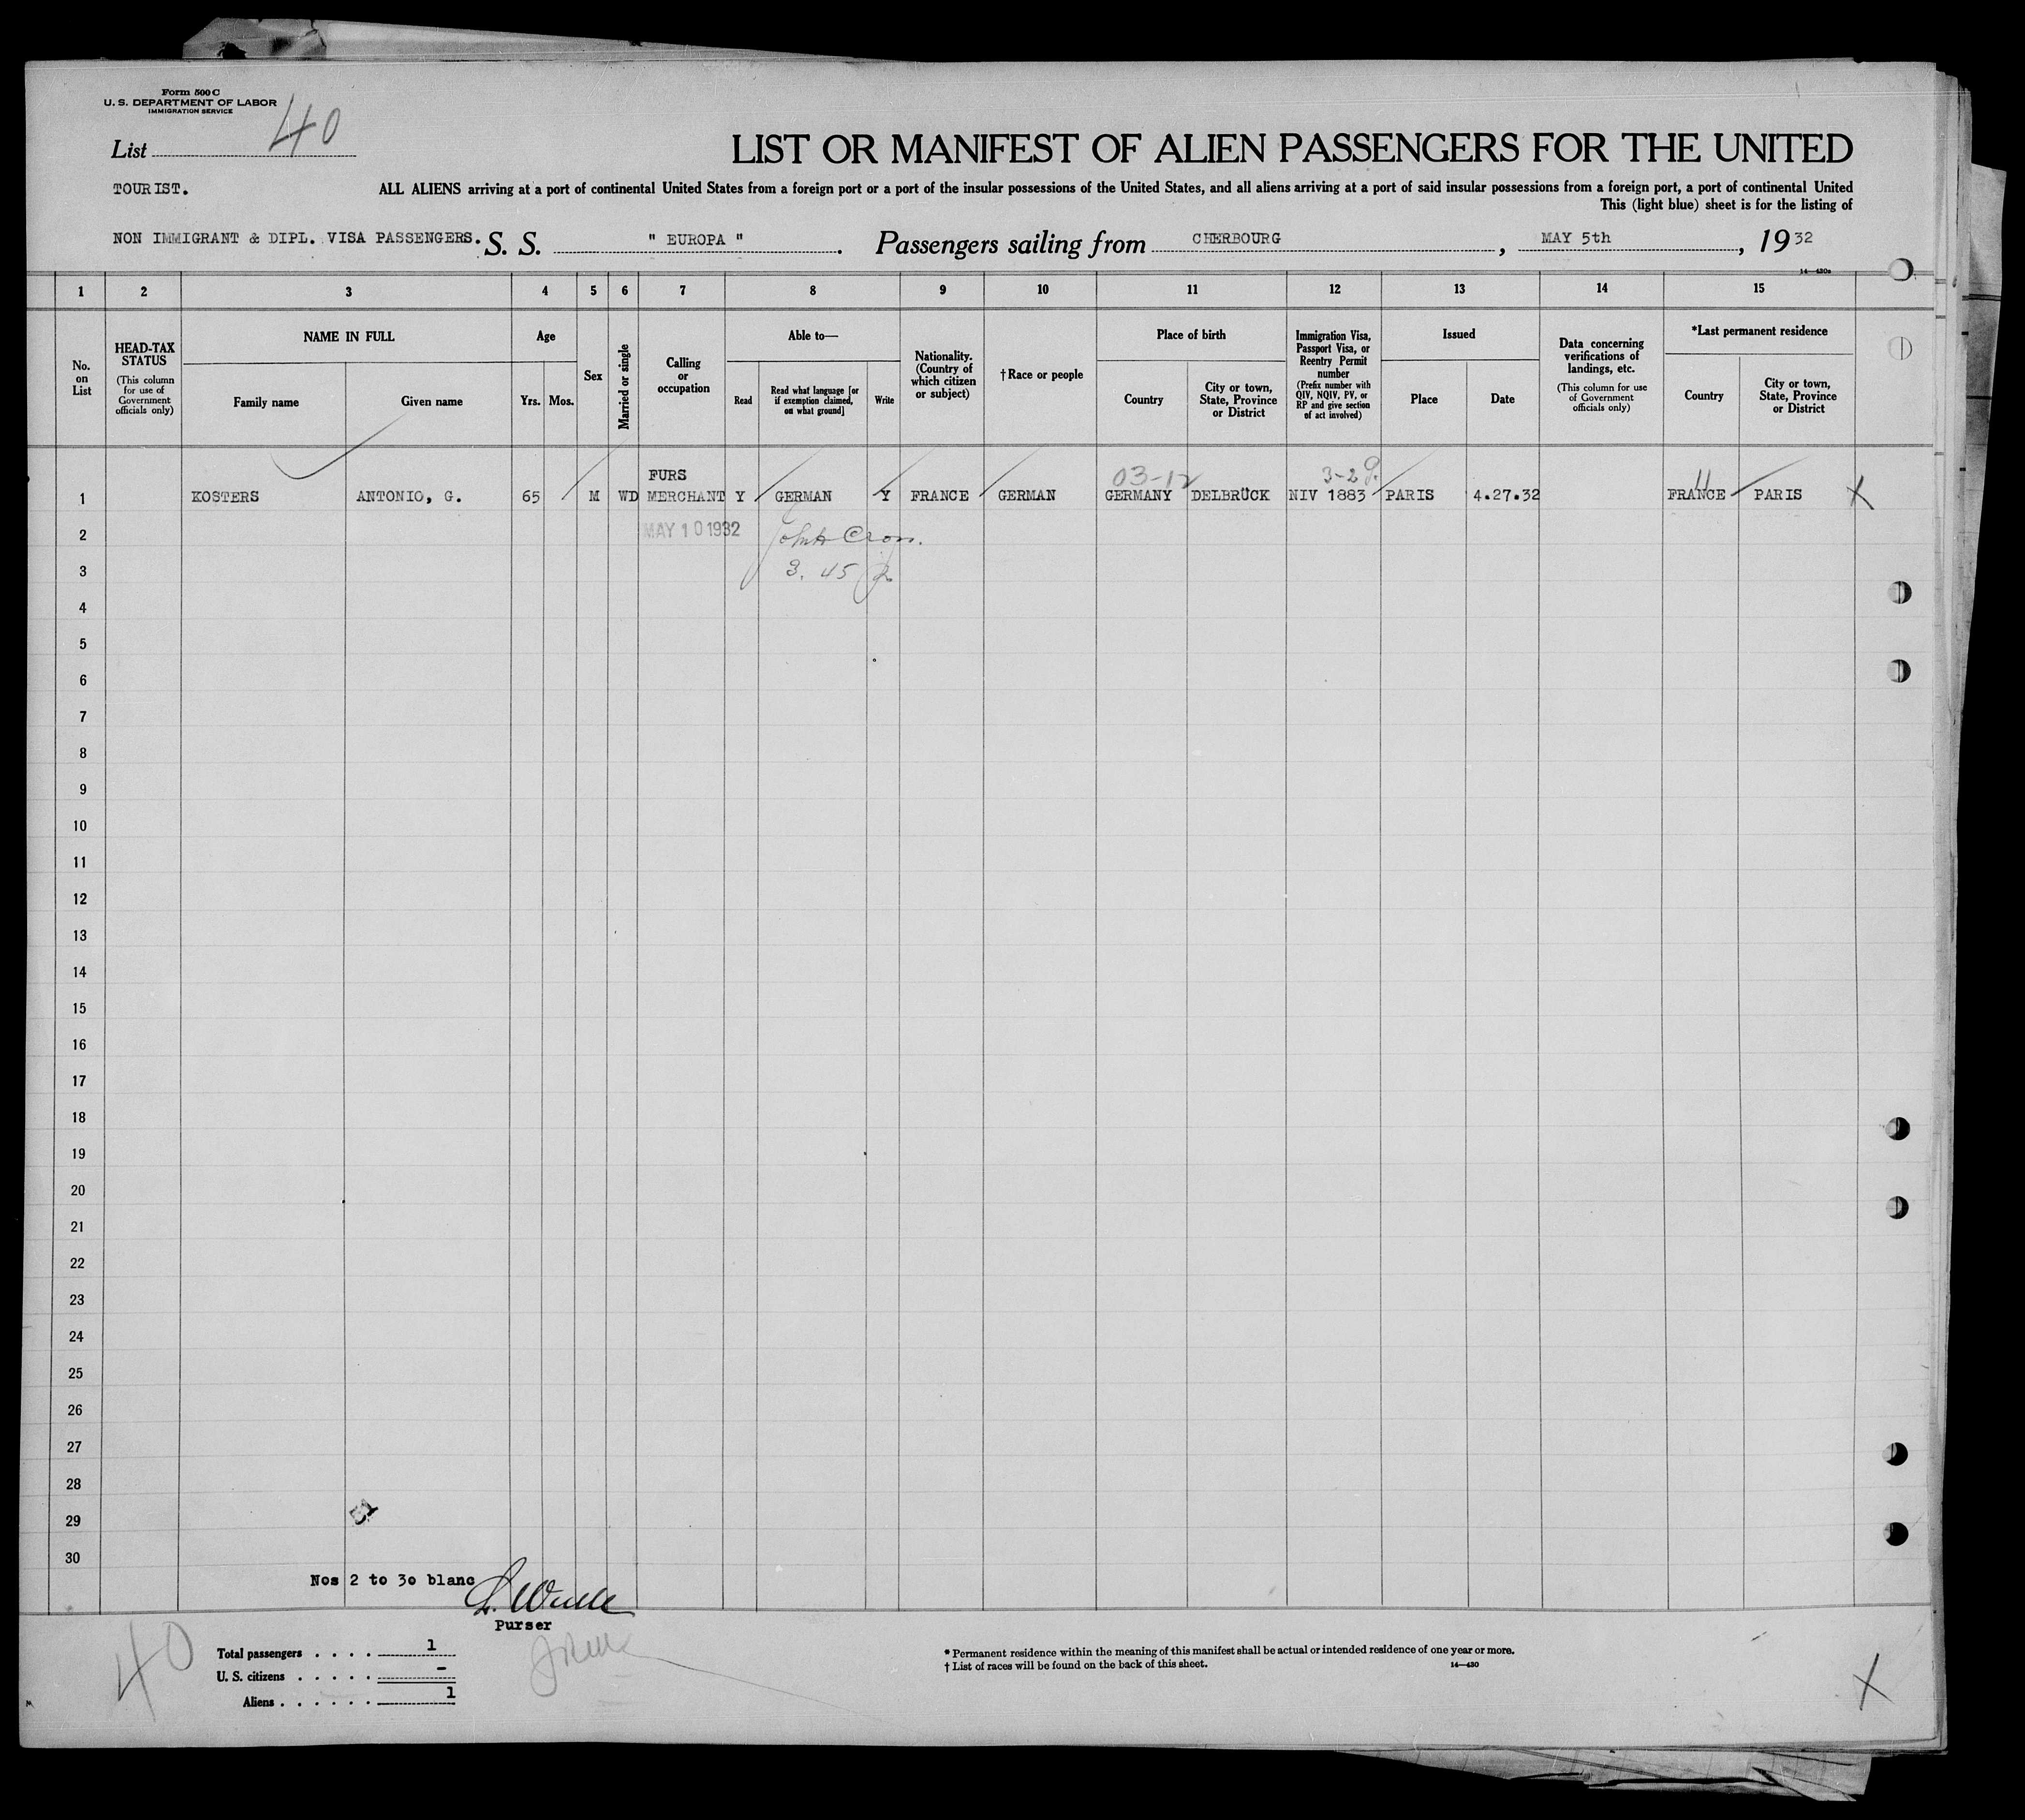 Form 500 C
U. S. DEPARTMENT OF LABOR
IMMIGRATION SERVICE
List 40
LIST OR MANIFEST OF ALIEN PASSENGERS FOR THE UNITED
TOURIST.
ALL ALIENS arriving at a port of continental United States from a foreign port or a port of the insular possessions of the United States, and all aliens arriving at a port of said insular possessions from a foreign port, a port of continental United
This (light blue) sheet is for the listing of
NON IMMIGRANT & DIPL. VISA PASSENGERS. S. S. " EUROPA ". Passengers sailing from CHERBOURG, MAY 5th, 1932
14—430a
1 2 3 4 5 6 7 8 9 10 11 12 13 14 15
No. on List
HEAD-TAX STATUS
(This column for use of Government officials only)
NAME IN FULL
Family name
Given name
Age
Yrs. Mos.
Sex
Married or single
Calling or occupation
Able to—
Read
Read what language [or if exemption claimed, on what ground]
Write
Nationality. (Country of which citizen or subject)
†Race or people
Place of birth
Country
City or town, State, Province or District
Immigration Visa, Passport Visa, or Reentry Permit number
(Prefix number with QIV, NQIV, PV, or RP and give section of act involved)
Issued
Place
Date
Data concerning verifications of landings, etc.
(This column for use of Government officials only)
*Last permanent residence
Country
City or town, State, Province or District
FURS 03-12
1 KOSTERS ANTONIO, G. 65 M WD MERCHANT Y GERMAN Y FRANCE GERMAN GERMANY DELBRÜCK NIV 1883 PARIS 4.27.32 FRANCE PARIS X
2 MAY 10 1932
3 3. 45
4
5
6
7
8
9
10
11
12
13
14
15
16
17
18
19
20
21
22
23
24
25
26
27
28
29
30
Nos 2 to 30 blanc
Purser
40
Total passengers . . . . 1
U. S. citizens . . . . . -
Aliens . . . . . . 1
* Permanent residence within the meaning of this manifest shall be actual or intended residence of one year or more.
† List of races will be found on the back of this sheet.
14—430
X